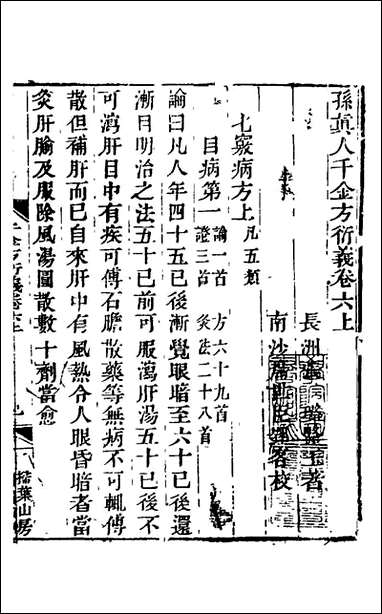 孫真人千金方衍義卷六上
長洲 璐 玉著
南沙席 臣 客校
七竅病方上凡五類
目病第一論一首 方六十九首
證三首 灸法二十八首
論曰凡人年四十五已後漸覺眼暗至六十已後還
漸目明治之法五十已前可服瀉肝湯五十已後不
可瀉肝目中有疾可傅石膽散藥等無病不可輒傅
散但補肝而已自來肝中有風熱令人眼昏暗者當
灸肝腧及服除風湯圓散數十劑當愈
千金方衍義卷六上
掃葉山房